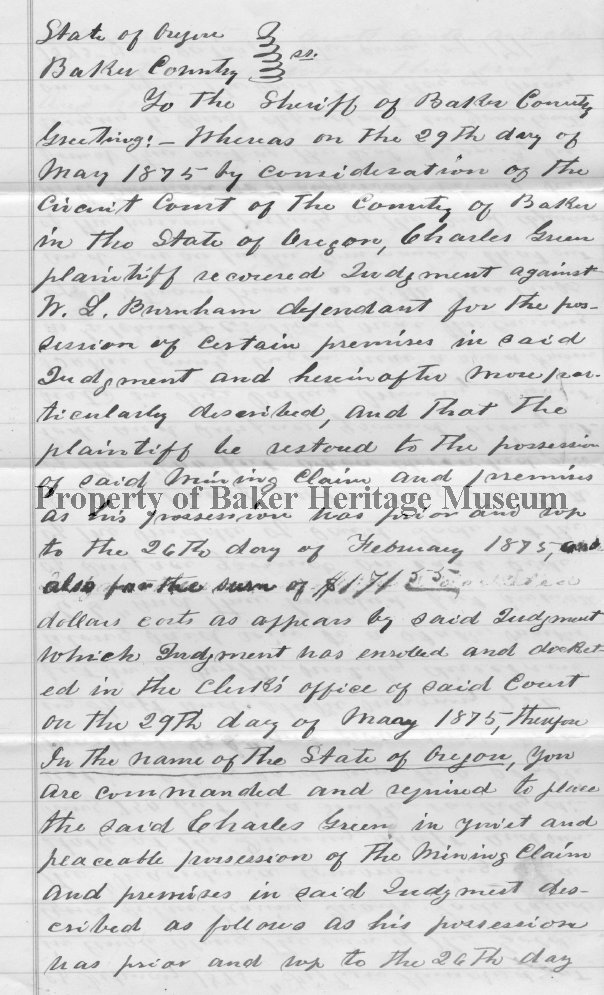 State of Oregon
Baker County } ss.
To the Sheriff of Baker County
Greeting: - Whereas on the 29th day of
May 1875 by consideration of the
Circuit Court of the County of Baker
in the State of Oregon, Charles Green
plaintiff recovered Judgment against
W. L. Burnham defendant for the pos-
session of certain premises in said
Judgment and hereinafter more par-
ticularly described, and that the
plaintiff be restored to the possession
of said Mining Claim and premises
Property of Baker Heritage Museum
as his possession was prior and up
to the 26th day of February 1875, and
also for the sum of $171 55
dollars costs as appears by said Judgment
which Judgment was enrolled and docket-
ed in the Clerk's office of said Court
on the 29th day of Maay 1875, therefore
In the name of the State of Oregon, you
are commanded and required to place
the said Charles Green in quiet and
peaceable possession of the Mining Claim
and premises in said Judgment des-
cribed as follows as his possession
was prior and up to the 26th day